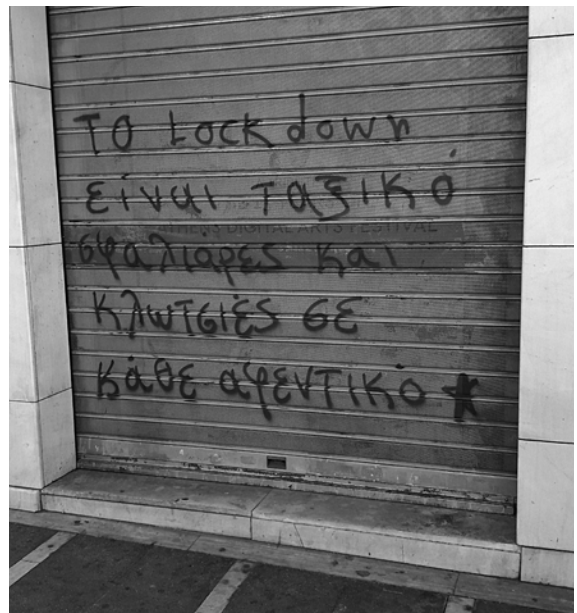 το Lockdown
είναι ταξικό
ATHENS DIGITAL ARTS FESTIVAL
σφαλιαρες και
κλωτσιές σε
κάθε αφεντικό *